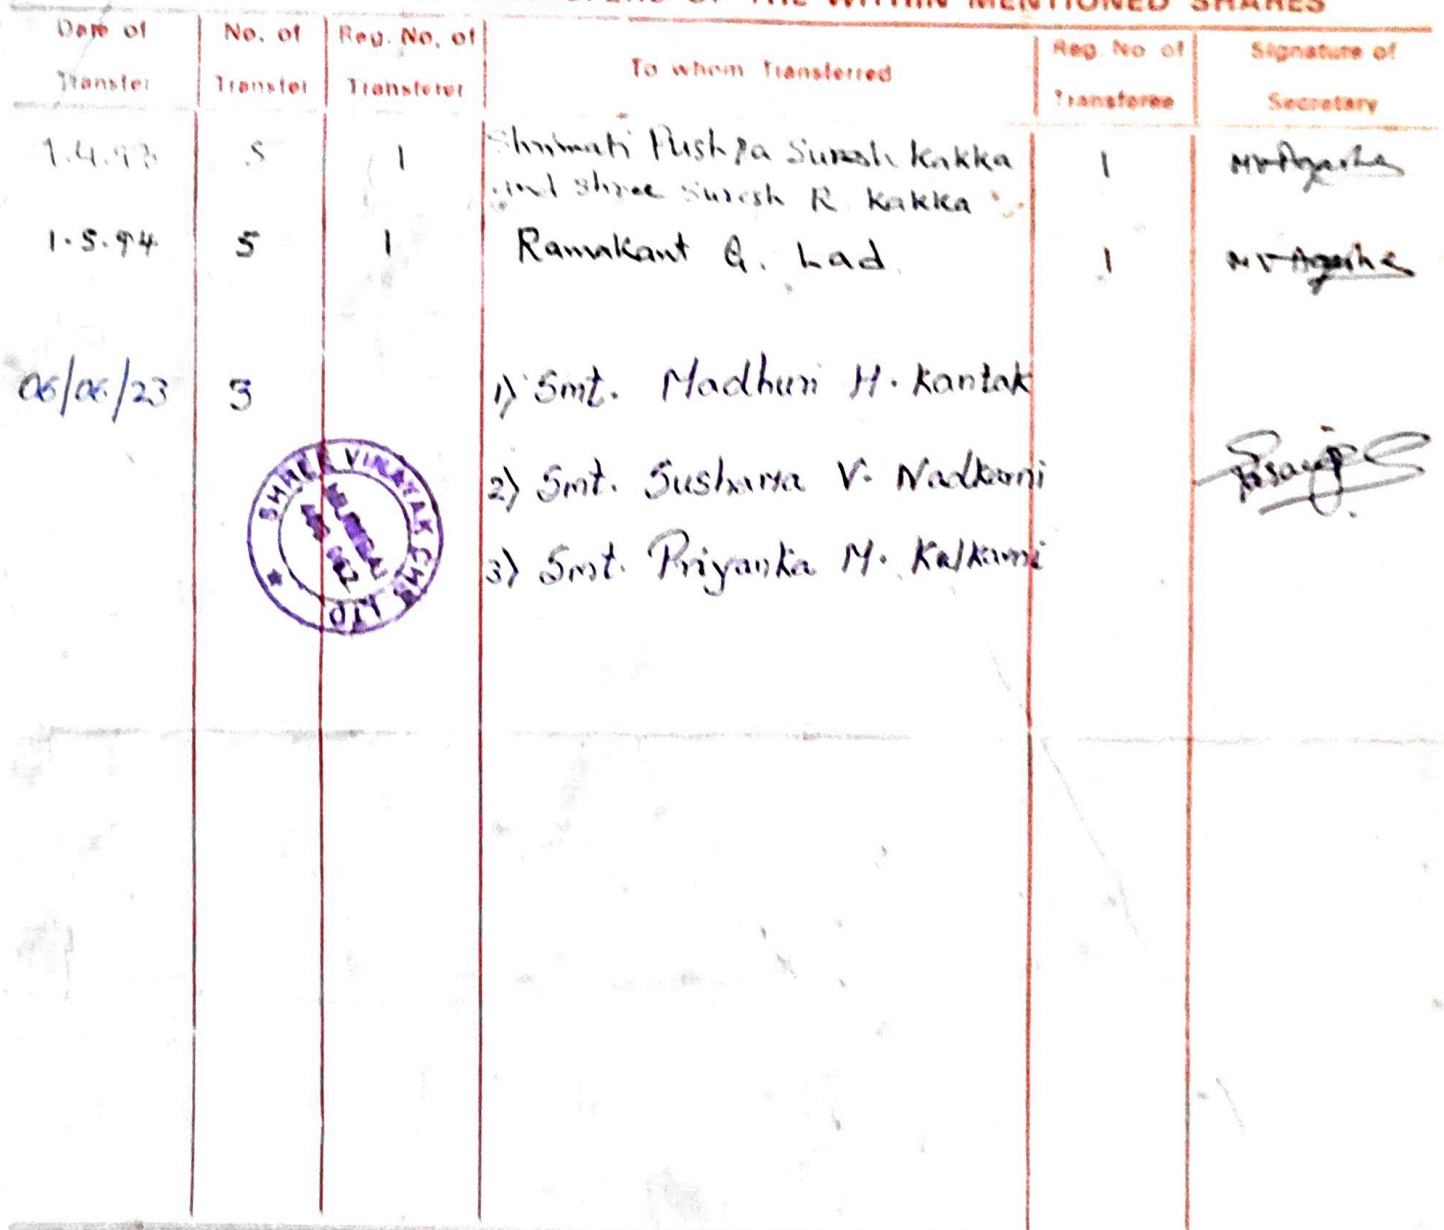 OF THE WITHIN MENTIONED SHARES
Date of Transfer
No. of Transfer
Reg. No. of Transferer
To whom Transferred
Reg. No of Transferee
Signature of Secretary
1.4.93 5 1 Shrimati Pushpa Suresh Kakka 1
and Shree Suresh R. Kakka
1.5.94 5 1 Ramakant G. Lad. 1
06/06/23 3 1) Smt. Madhuri H. Kantak
2) Smt. Sushama V. Nadkarni
3) Smt. Priyanka M. Kalkarni
SHREE VINAYAK CHS LTD